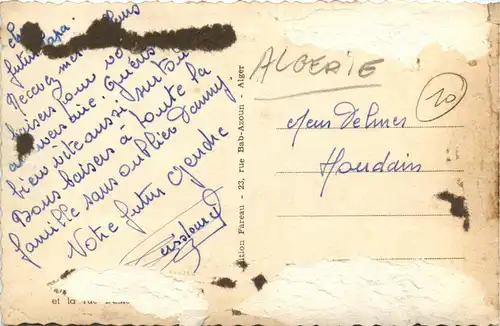 futur Papa
Recevez mes
baisers pour vo
anniversaire.
bien vite aussi
Bons baisers à toute la
famille sans oublier Danny.
Votre futur Gendre
ALGERIE
10
Delmer
Houdain
dition Fareau - 23, rue Bab-Azoun - Alger
et la rue